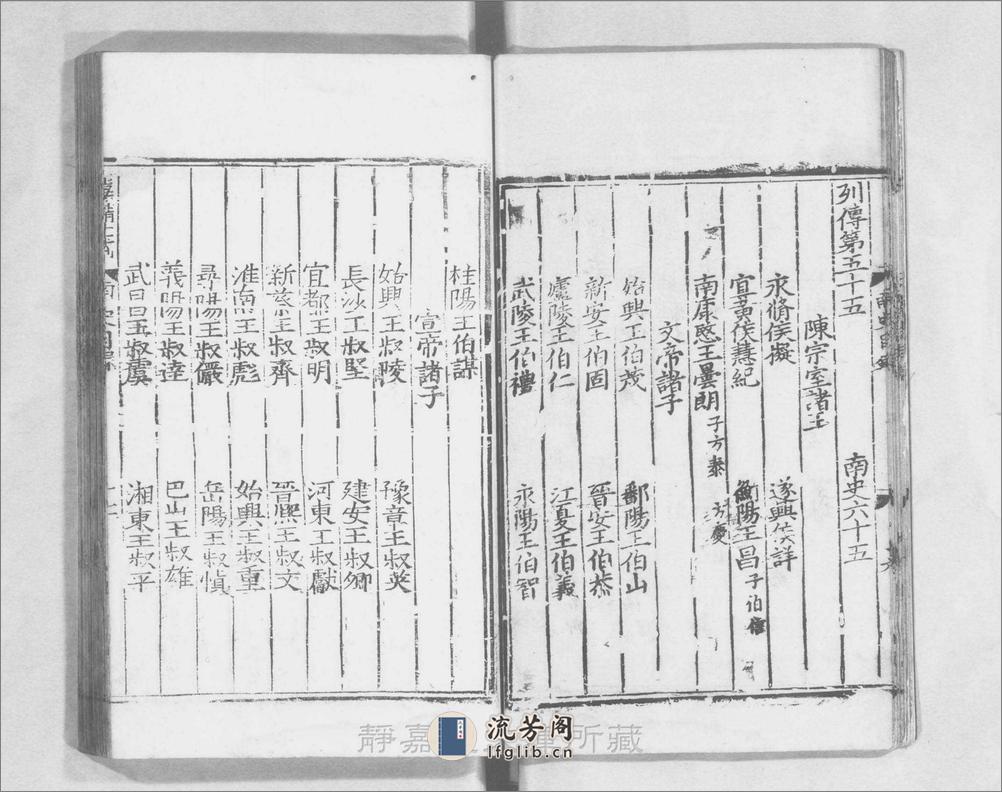 列傳第五十五 南史六十五
陳宗室諸王
永脩侯擬 遂興侯詳
宜黃侯慧紀 衡陽王昌子伯信
南康愍王曇朗子方泰 方慶
文帝諸子
始興王伯茂 鄱陽王伯山
新安王伯固 晉安王伯恭
廬陵王伯仁 江夏王伯義
武陵王伯禮 永陽王伯智
桂陽王伯謀
宣帝諸子
始興王叔陵 豫章王叔英
長沙王叔堅 建安王叔卿
宜都王叔明 河東王叔獻
新蔡王叔齊 晉熙王叔文
淮南王叔彪 始興王叔重
尋陽王叔儼 岳陽王叔慎
義陽王叔達 巴山王叔雄
武昌王叔虞 湘東王叔平
南史目錄
靜嘉 所藏
流芳阁
lfglib.cn